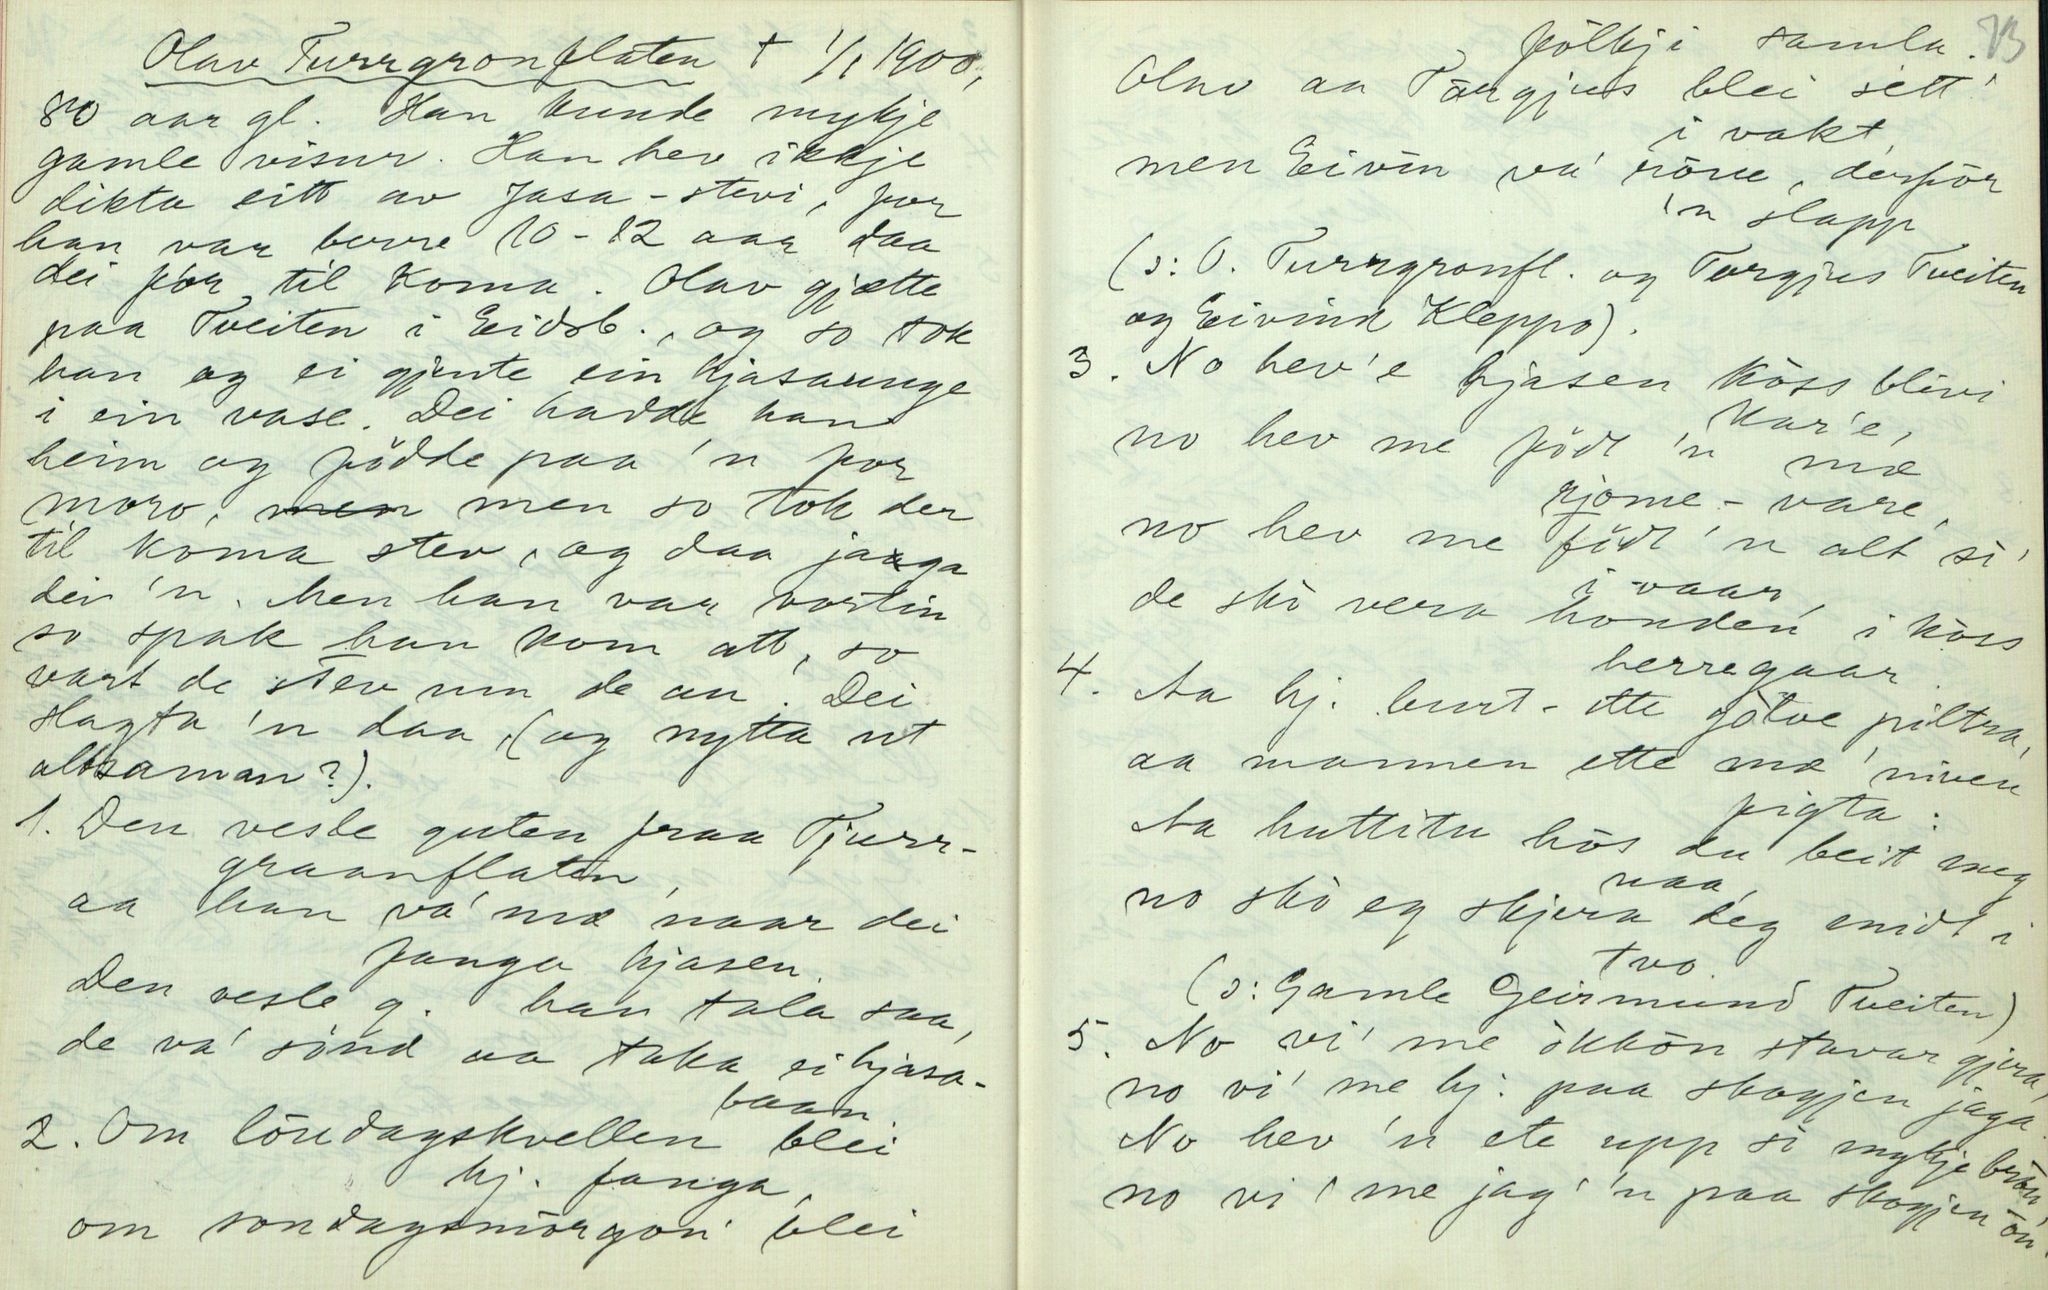 Olav Turrgronflaten † 1/1 1900,
80 aar gl. Han kunde mykje
gamle visur. Han hev ikkje
dikta eitt av Jasa-stevi, for
han var berre 10-12 aar daa
dei fór til Koma. Olav gjætte
paa Tveiten i Eidsb., og so tok
han og ei gjente ein hjasaunge
i ein vase. Dei hadde han
heim og födde paa 'n for
moro, men men so tok der
til koma stev, og daa jaga
dei 'n. Men han var vortin
so spak han kom att, so
vart de stev um de au. Dei
slagta 'n daa, (og nytta ut
altsaman?).
1. Den vesle guten fraa Tjurr-
graanflaten,
aa han va' mæ naar dei
fanga hjasen.
Den vesle g. han tala saa,
de va' sönd aa taka ei hjasa-
baan
2. Om löudagskvellen blei
hj. fanga,
om sondagsmörgon blei
fölkji samla. 73
Olav aa Tårgjus blei sett
i vakt,
men Eivin va' röue, derför
'n slapp
(ɔ: O. Turrgronfl. og Torgjus Tveiten
og Eivind Kleppo).
3. No hev'e hjasen köss blivi
kar'e,
no hev me födt 'n mæ
rjome-vare,
no hev me födt 'n alt si'
i vaar,
de skò vera honden i köss
herregaar.
4. Aa hj. burt-ette gölve piltra,
aa mannen ette mæ niven
figta:
Aa huttitu hös du beit meg
naa,
no skò eg skjera deg midt i
tvo.
(ɔ: Gamle Geirmund Tveiten)
5. No vi' me ökkön stavar gjera,
no vi' me hj. paa skogjen jaga.
No hev 'n ete upp si mykje bröu,
no vi' me jag' 'n paa skogjen ön.